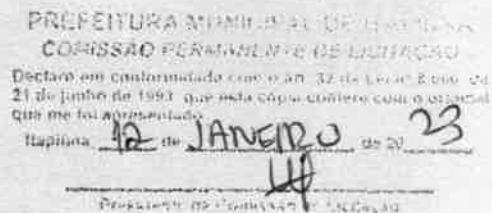 PREFEITURA MUNICIPAL DE
COMISSÃO PERMANENTE DE LICITAÇÃO
Declaro em conformidade com o art. 32 da Lei nº 8.666 de
21 de junho de 1993 que esta cópia confere com o original
que me foi apresentado.
Itapiúna 12 de JANEIRO de 20 23
Presidente da Comissão de Licitação